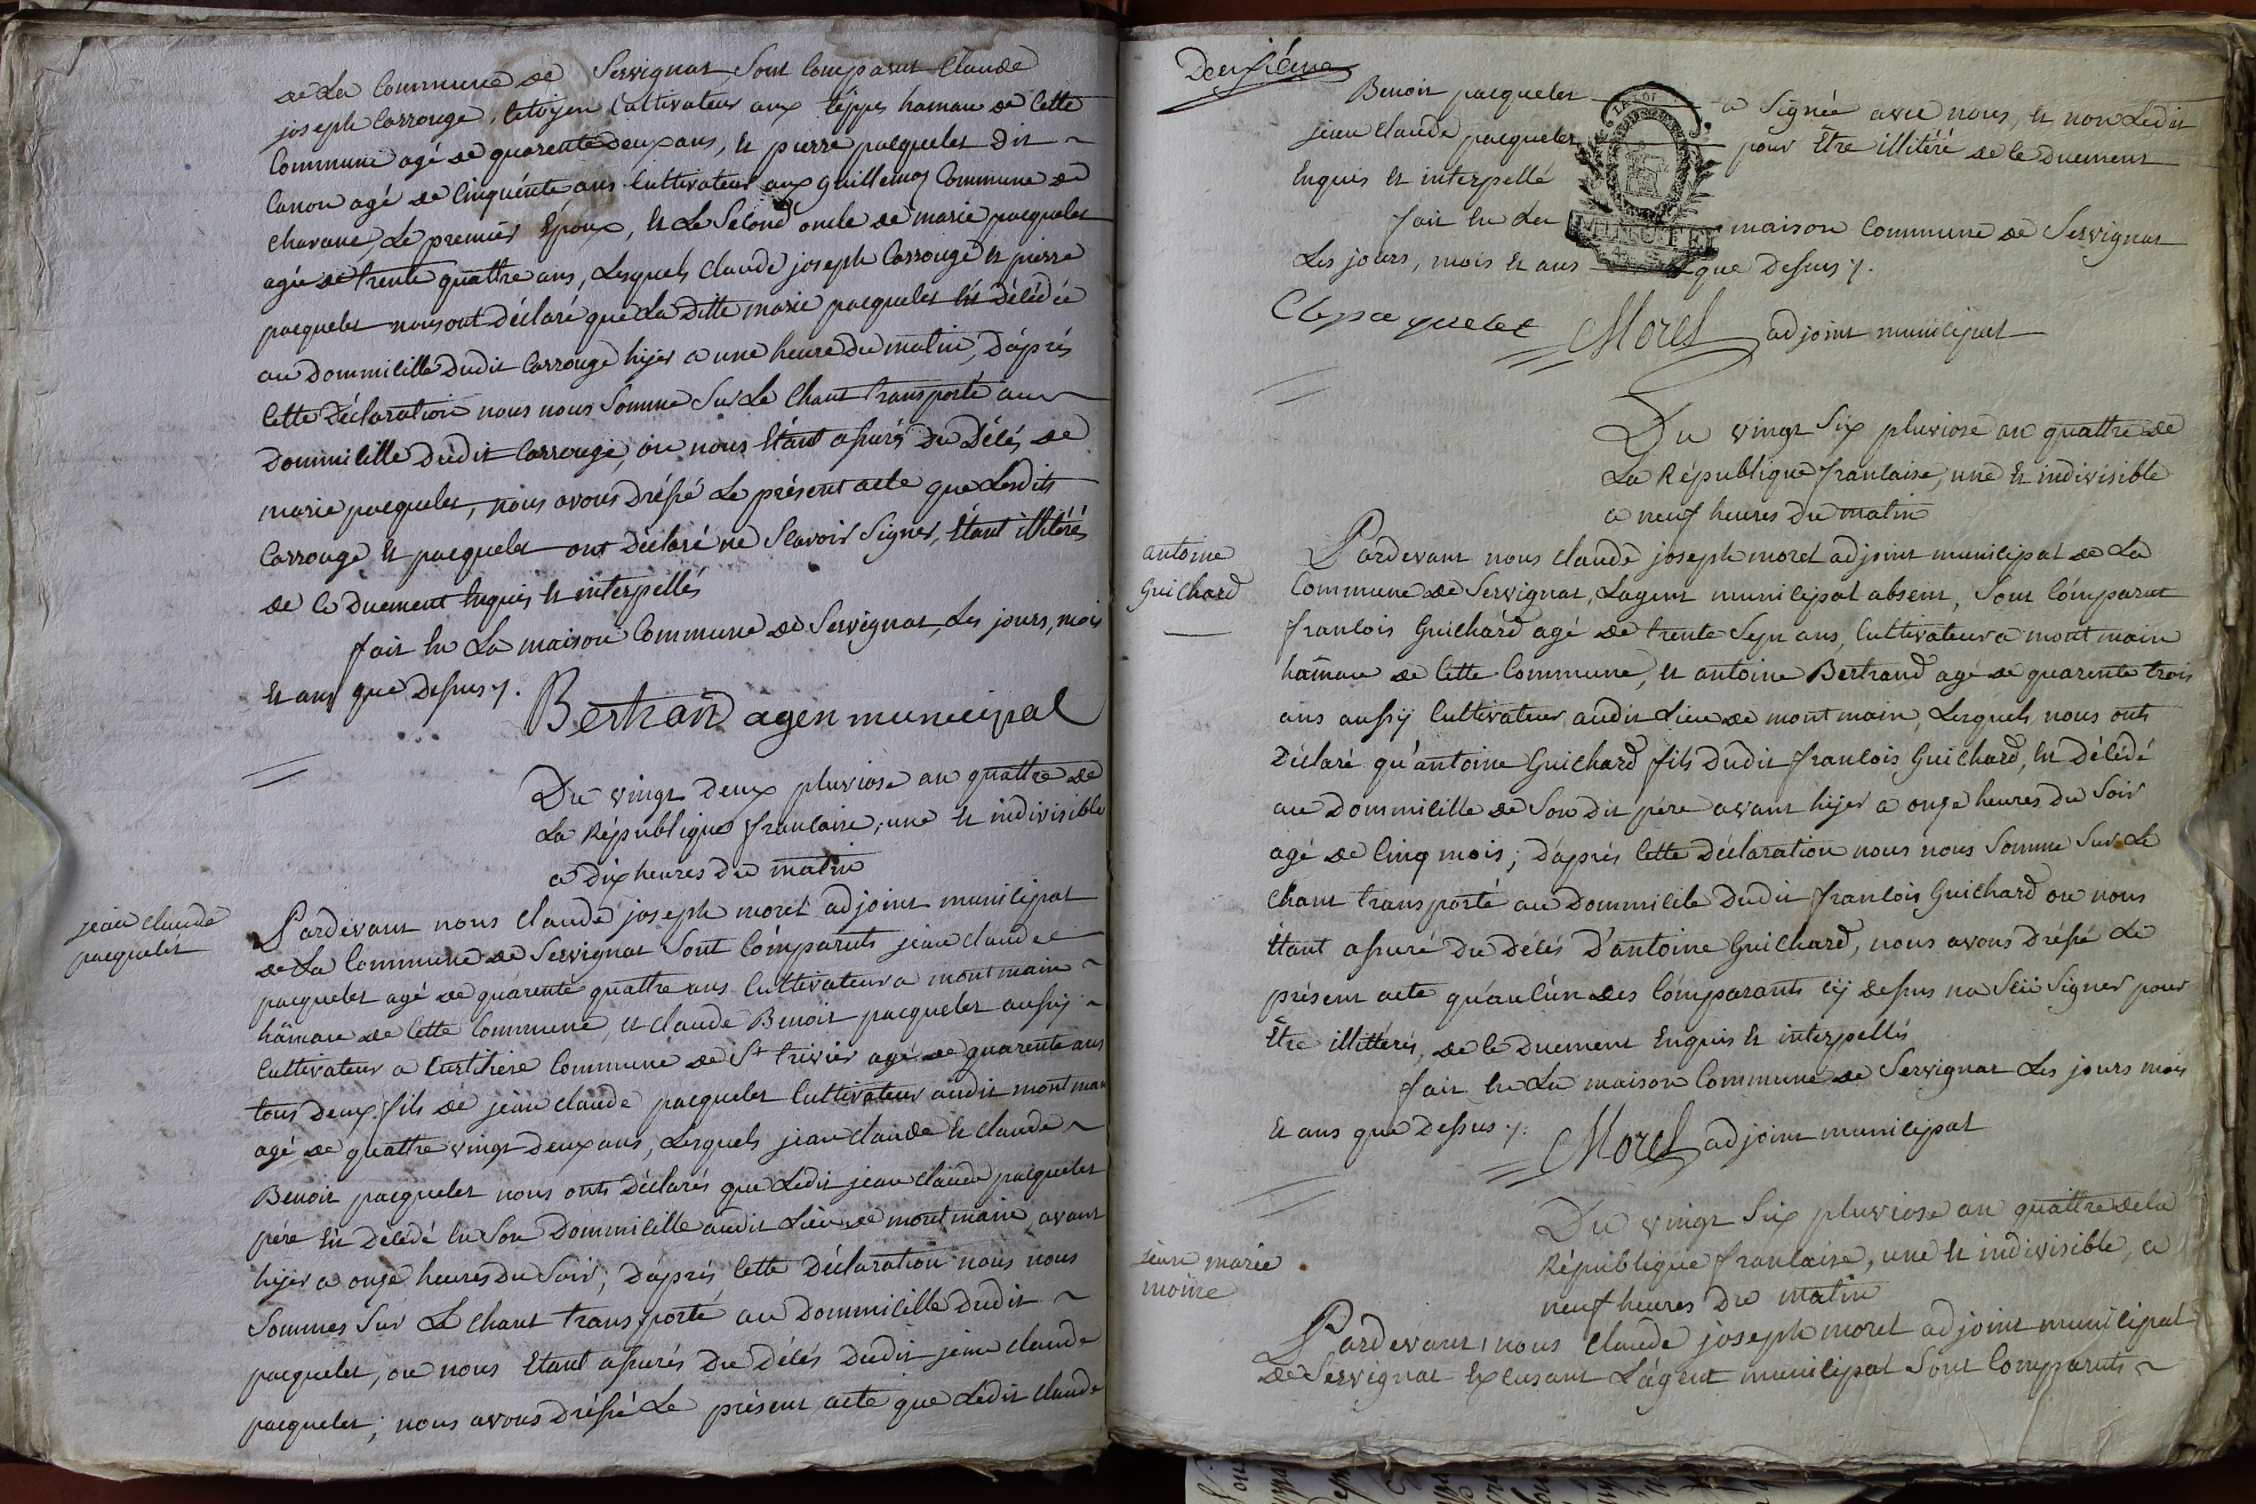 de La Commune de Servignat Sont Comparut Claude
joseph Carrouge, Citoyen Cultivateur aux téppes hamau de Cette
Commune agé de quarente deux ans, Et pierre pacquelet dit
Canon agé de Cinquénte ans Cultivateur aux Guillemoz Commune de
Chavane, Le premiér Epoux, Et Le Sécond oncle de marie pacquelet
agée de trente quattre ans, Lesquels Claude joseph Carrouge Et pierre
pacquelet nous ont déclaré que La ditte marie pacquelet Est décédée
au dommicille dudit Carrouge hijer a une heure du matin, d'aprés
Cette déclaration nous nous Somme Sur Le Chant transporté au
dommicille dudit Carrouge, ou nous Etant assurés du décés de
marie pacquelet, nous avons dréssé Le présent acte que Lesdits
Carrouge Et pacquelet ont déclaré ne Scavoir Signer, Etant illitérés
de Ce duement Enquis Et interpellés
fait En La maison Commune de Servignat, Les jours, mois
Et ans que dessus ./.
Bertrand agen municipal
Du vingt deux pluviose an quattre de
La République francaise, une Et indivisible
a dix heures du matin
jean claude
pacquelet
Pardevant nous Claude joseph morel adjoint municipal
de La Commune de Servignat Sont Comparuts jean claude
pacquelet agé de quarente quattre ans Cultivateur a montmain
hamau de Cette Commune, et claude Benoit pacquelet aussy
Cultivateur a Curtihere Commune de St trivier agé de quarente ans
tous deux fils de jean claude pacquelet Cultivateur audit montmain
agé de quattre vingt deux ans, Lesquels jean claude Et claude
Benoit pacquelet nous onts déclarés que Ledit jean claude pacquelet
pére Est décédé En Son dommicille audit Lieu de montmain, avant
hijer a onze heures du Soir, d'aprés Cette déclaration nous nous
Sommes Sur Le Chant transporté au dommicille dudit
pacquelet, ou nous Etant assurés du décés dudit jean claude
pacquelet, nous avons dréssé Le présent acte que Ledit Claude
Deuxiéme
Benoit pacquelet a Signée avec nous, Et non Ledit
jean claude pacquelet pour Etre illitéré de Ce duement
Enquis Et interpellé
fait En La maison Commune de Servignat
Les jours, mois Et ans que dessus ./.
LA LOI
MINUTE
Cl pacquelet Morel adjoint municipal
Du vingt Six pluviose an quattre de
La République francaise, une Et indivisible
a neuf heures du matin
antoine
Guichard
Pardevant nous claude joseph morel adjoint municipal de La
Commune de Servignat, Lagent municipal absent, Sont Comparut
francois Guichard agé de trente Sept ans, Cultivateur a montmain
hamau de Cette Commune, Et antoine Bertrand agé de quarente trois
ans aussy Cultivateur audit Lieu de montmain, Lesquels nous onts
déclaré qu'antoine Guichard fils dudit francois Guichard, Est décédé
au dommicille de Son dit pére avant hijer a onze heures du Soir
agé de Cinq mois; d'aprés Cette déclaration nous nous Somme Sur Le
Chant transporté au dommicile dudit francois Guichard ou nous
Etant assuré du décés d'antoine Guichard, nous avons dréssé Le
présent acte qu'aucun des Comparants Cy dessus na Sceu Signer pour
Etre illittérés, de Ce duement Enquis Et interpellés
fait En La maison Commune de Servignat Les jours mois
Et ans que dessus ./. Morel adjoint municipal
Du vingt Six pluviose an quattre de la
République francaise, une Et indivisible, a
neuf heures du matin
jean marie
moine
Pardevant nous Claude joseph morel adjoint municipal
de Servignat Excusant L'agent municipal Sont Comparuts